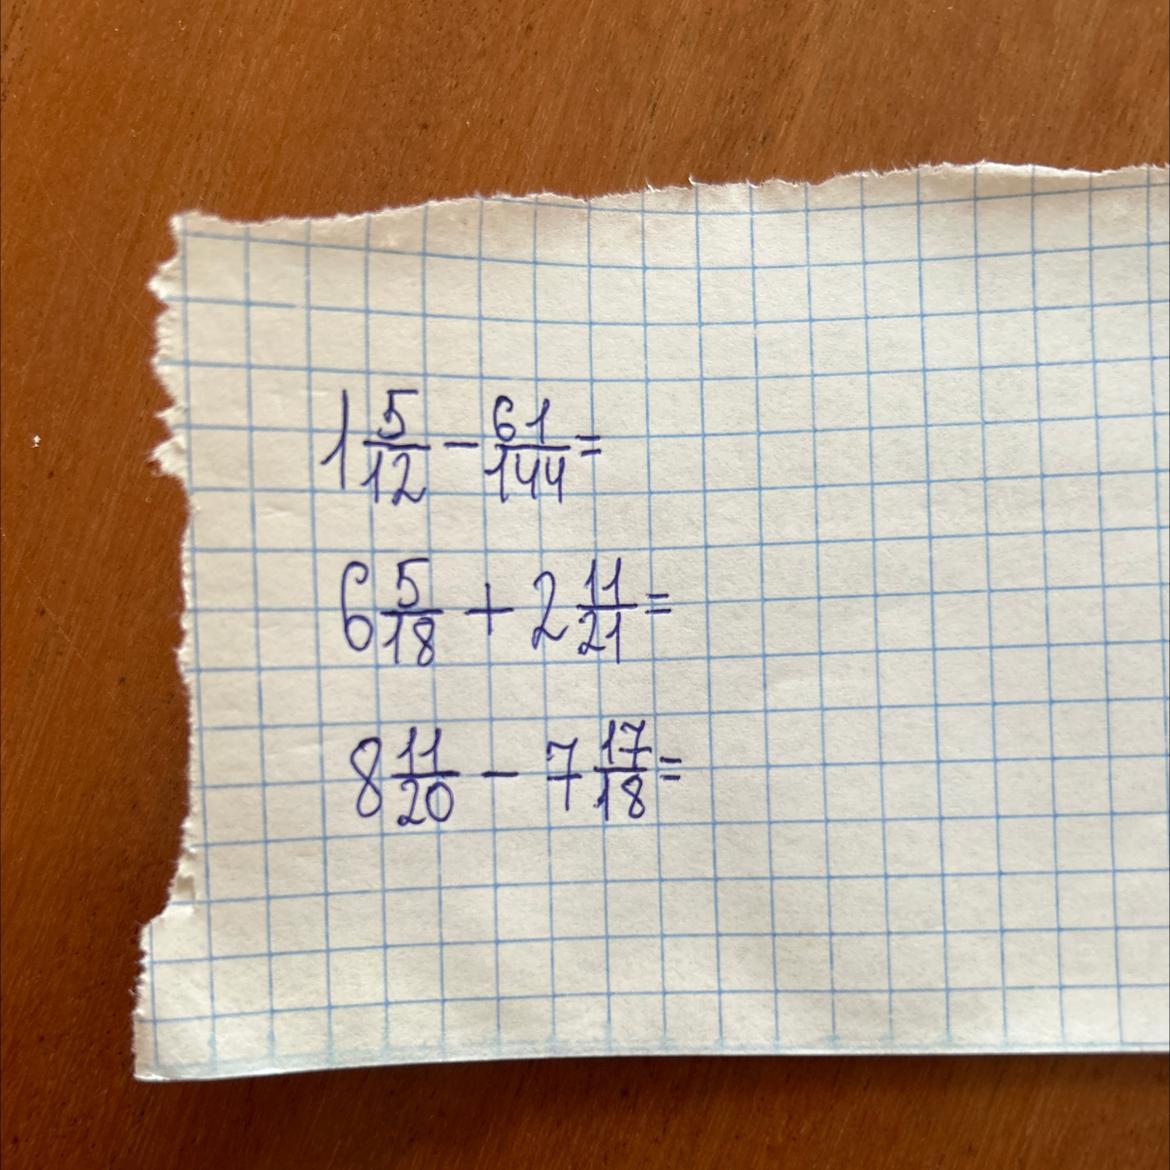 1 5/12 - 61/144 =
6 5/18 + 2 11/21 =
8 11/20 - 7 17/18 =